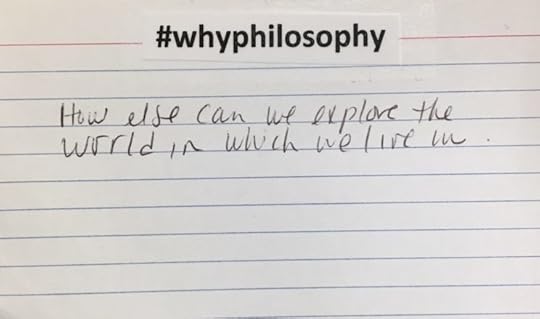 #whyphilosophy
How else can we explore the
world in which we live in.